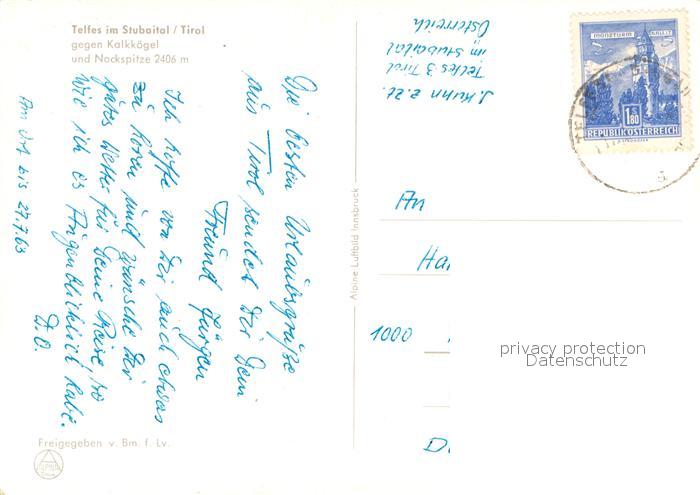 Telfes im Stubaital / Tirol
gegen Kalkkögel
und Nockspitze 2406 m
Die besten Urlaubsgrüße
aus Tirol sendet Dir Dein
Freund Jürgen
Ich hoffe von Dir auch etwas
zu hören und wünsche Dir
gutes Wetter für Deine Reise, so
wie ich es Augenblicklich habe.
D. O.
Am Ort bis 27.7.63
Freigegeben v. Bm. f. Lv.
Alpine Luftbild Innsbruck
J. Kuhn z. Zt.
Telfes 3 Tirol
im Stubaital
Österreich
MÜNZTURM HALL I. T.
1S80
REPUBLIK ÖSTERREICH
An
Ha
1000
D
privacy protection
Datenschutz